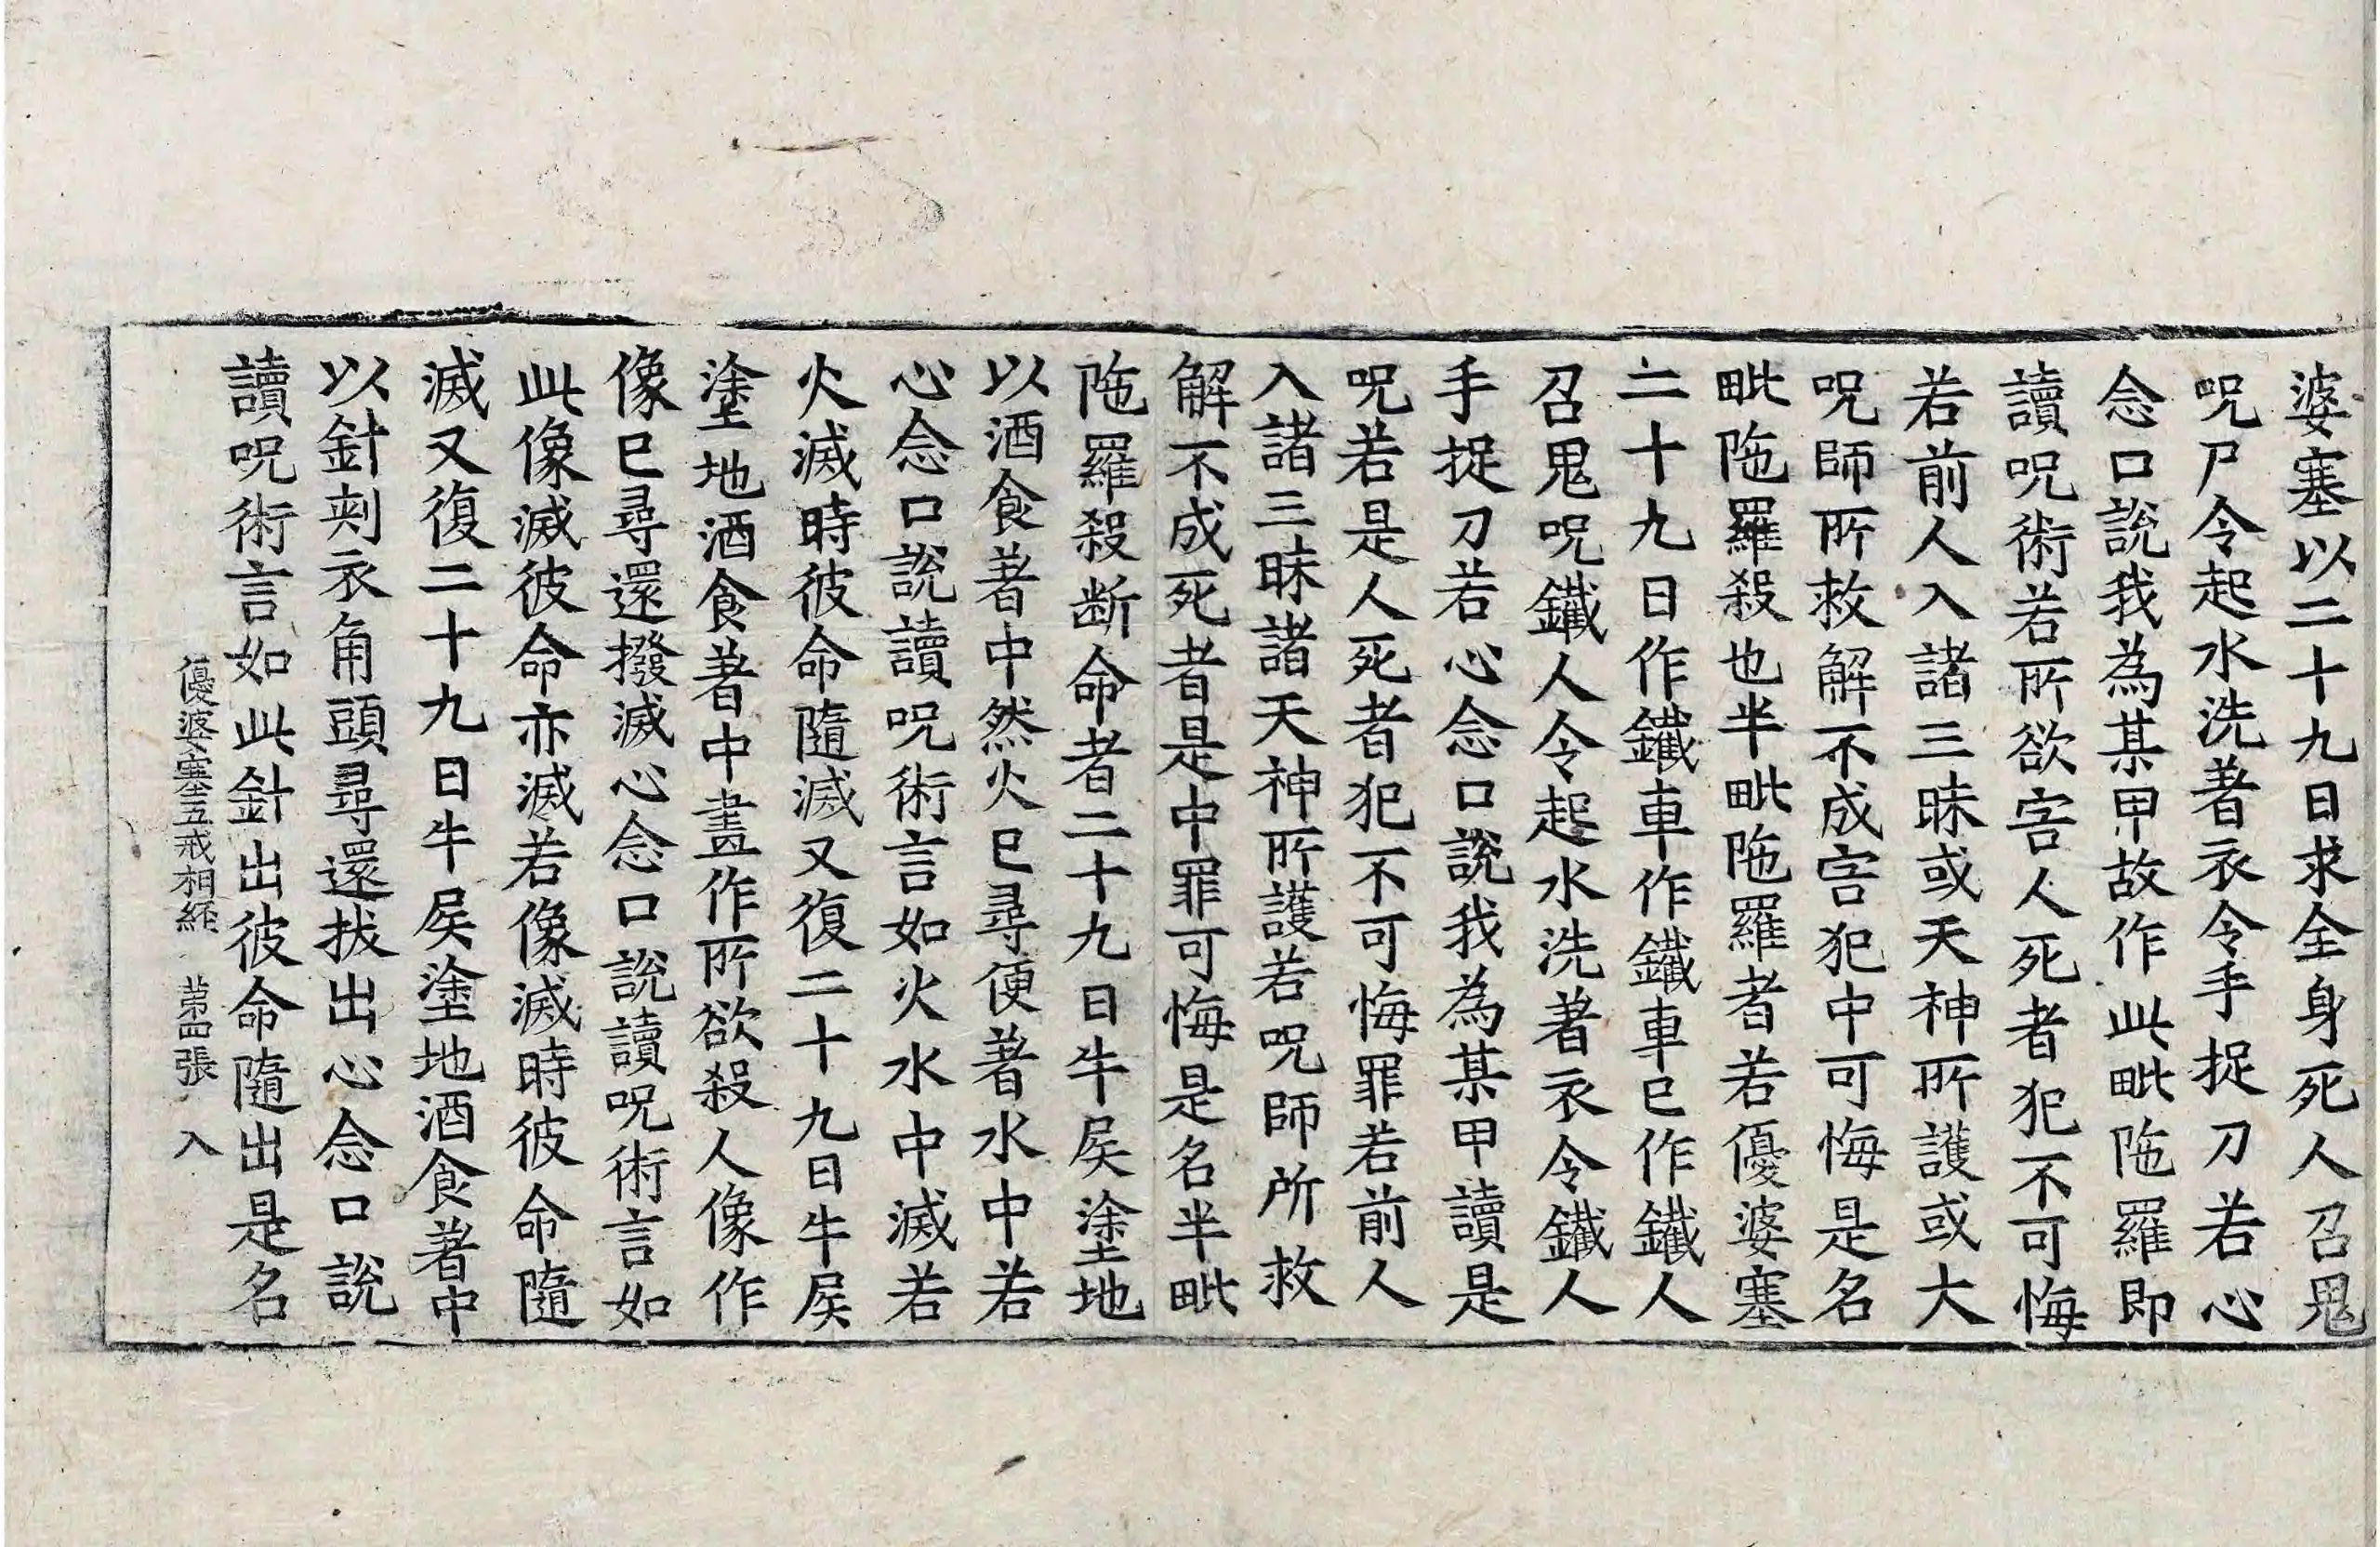 婆塞以二十九日求全身死人召鬼
呪尸令起水洗著衣令手捉刀若心
念口說我為某甲故作此毗陁羅即
讀呪術若所欲害人死者犯不可悔
若前人入諸三昧或天神所護或大
呪師所救解不成害犯中可悔是名
毗陁羅殺也半毗陁羅者若優婆塞
二十九日作鐵車作鐵車已作鐵人
召鬼呪鐵人令起水洗著衣令鐵人
手捉刀若心念口說我為某甲讀是
呪若是人死者犯不可悔罪若前人
入諸三昧諸天神所護若呪師所救
解不成死者是中罪可悔是名半毗
陁羅殺断命者二十九日牛屎塗地
以酒食著中然火已尋便著水中若
心念口說讀呪術言如火水中滅若
火滅時彼命隨滅又復二十九日牛屎
塗地酒食著中畫作所欲殺人像作
像已尋還撥滅心念口說讀呪術言如
此像滅彼命亦滅若像滅時彼命隨
滅又復二十九日牛屎塗地酒食著中
以針刾衣角頭尋還拔出心念口說
讀呪術言如此針出彼命隨出是名
優婆塞五戒相經 苐四張 入